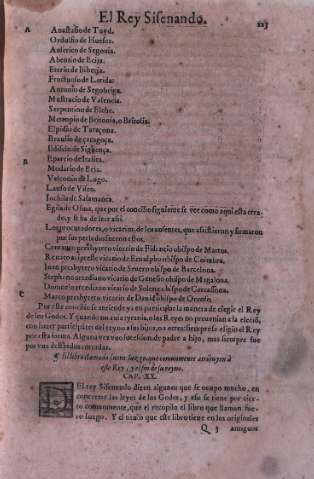 El Rey Sisenando.
223
A
Anastasio de Tuyd.
Ordulfo de Huesca.
Anserico de Segouia.
Abencio de Ecija.
Eterio de Biberja.
Fructuoso de Lerida:
Antonio de Segobriga.
Mustacio de Valencia.
Serpentino de Elche.
Metropio de Britonia, o
Elpidio de Taraçona.
Braulio de çaragoça.
Ildisclo de Sigüença.
B
Eparcio de Italica.
Modario de Ecja.
Vasconio de Lugo.
Lauso de Viseo.
Iochila de Salamanca.
Egila de Osma, que por el concilio siguiente se vee como aqui esta erra-
do, y se ha de leer assi.
Los procuradores, o vicarios, de los ausentes, que assistieron y firmaron
por sus perlados, fueron estos.
Centauro presbytero vicario de Fidancio obispo de Martos.
Renato arcipreste vicario de Ermulpho obispo de Coimbra.
Iuan presbytero vicario de Seuero obispo de Barcelona.
Stephano arcediano vicario de Genesio obispo de Magalona.
Donnelo arcediano vicario de Solemne obispo de Carcassona.
C
Marco presbytero vicario de Dauid obispo de Orense.
Por este concilio se entiende ya en particular la manera de elegir el Rey
de los Godos. Y quando auia tyrania, o los Reyes no permitian a la eleció,
con hazer participantes del reyno a sus hijos, no era esse siempre se eligia el Rey
por esta forma. Alguna vez vuo sucession de padre a hijo, mas siempre fue
por vias desordenadas.
¶ El libro llamado fuero Iuzgo, que comunmente atribuyen à
este Rey, y el fin de su reyno.
CAP. XX.
DEl rey Sisenando dizen algunos que se ocupo mucho, en
concertar las leyes de los Godos, y assi se tiene por cier
to comunmente, que el recopilo el libro que llaman fue-
ro Iuzgo. Y el titulo que este libro tiene en los originales
Q 3 antiguos